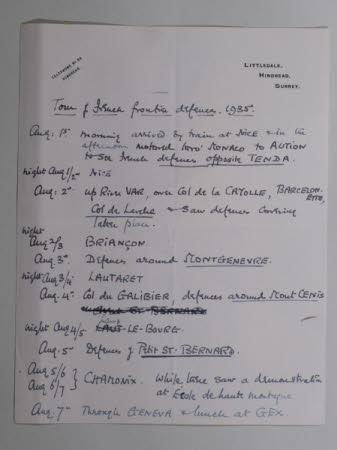 TELEPHONE Nº 58
HINDHEAD.
LITTLEDALE,
HINDHEAD,
SURREY.
Tour of French frontier defences. 1935.
Aug: 1st morning arrived by train at NICE & in the
afternoon motored toward MONACO to AUTION
to see French defences opposite TENDA.
night Aug 1/2 NICE
Aug: 2nd up River VAR, over Col de la CAYOLLE, BARCELON-
ETTE,
Col de Larche & saw defences covering
latter place.
night
Aug 2/3 BRIANÇON
Aug 3rd. Defences around MONTGENEVRE.
night Aug 3/4 LAUTARET
Aug. 4th Col du GALIBIER, defences around Mount CENIS
night Aug 4/5 -LE-BOURG.
Aug. 5th Defences of Petit ST. BERNARD.
Aug 5/6 }
Aug 6/7 } CHAMONIX. While there saw a demonstration
at Ecole de haute montagne
Aug 7th Through GENEVA & lunch at GEX.